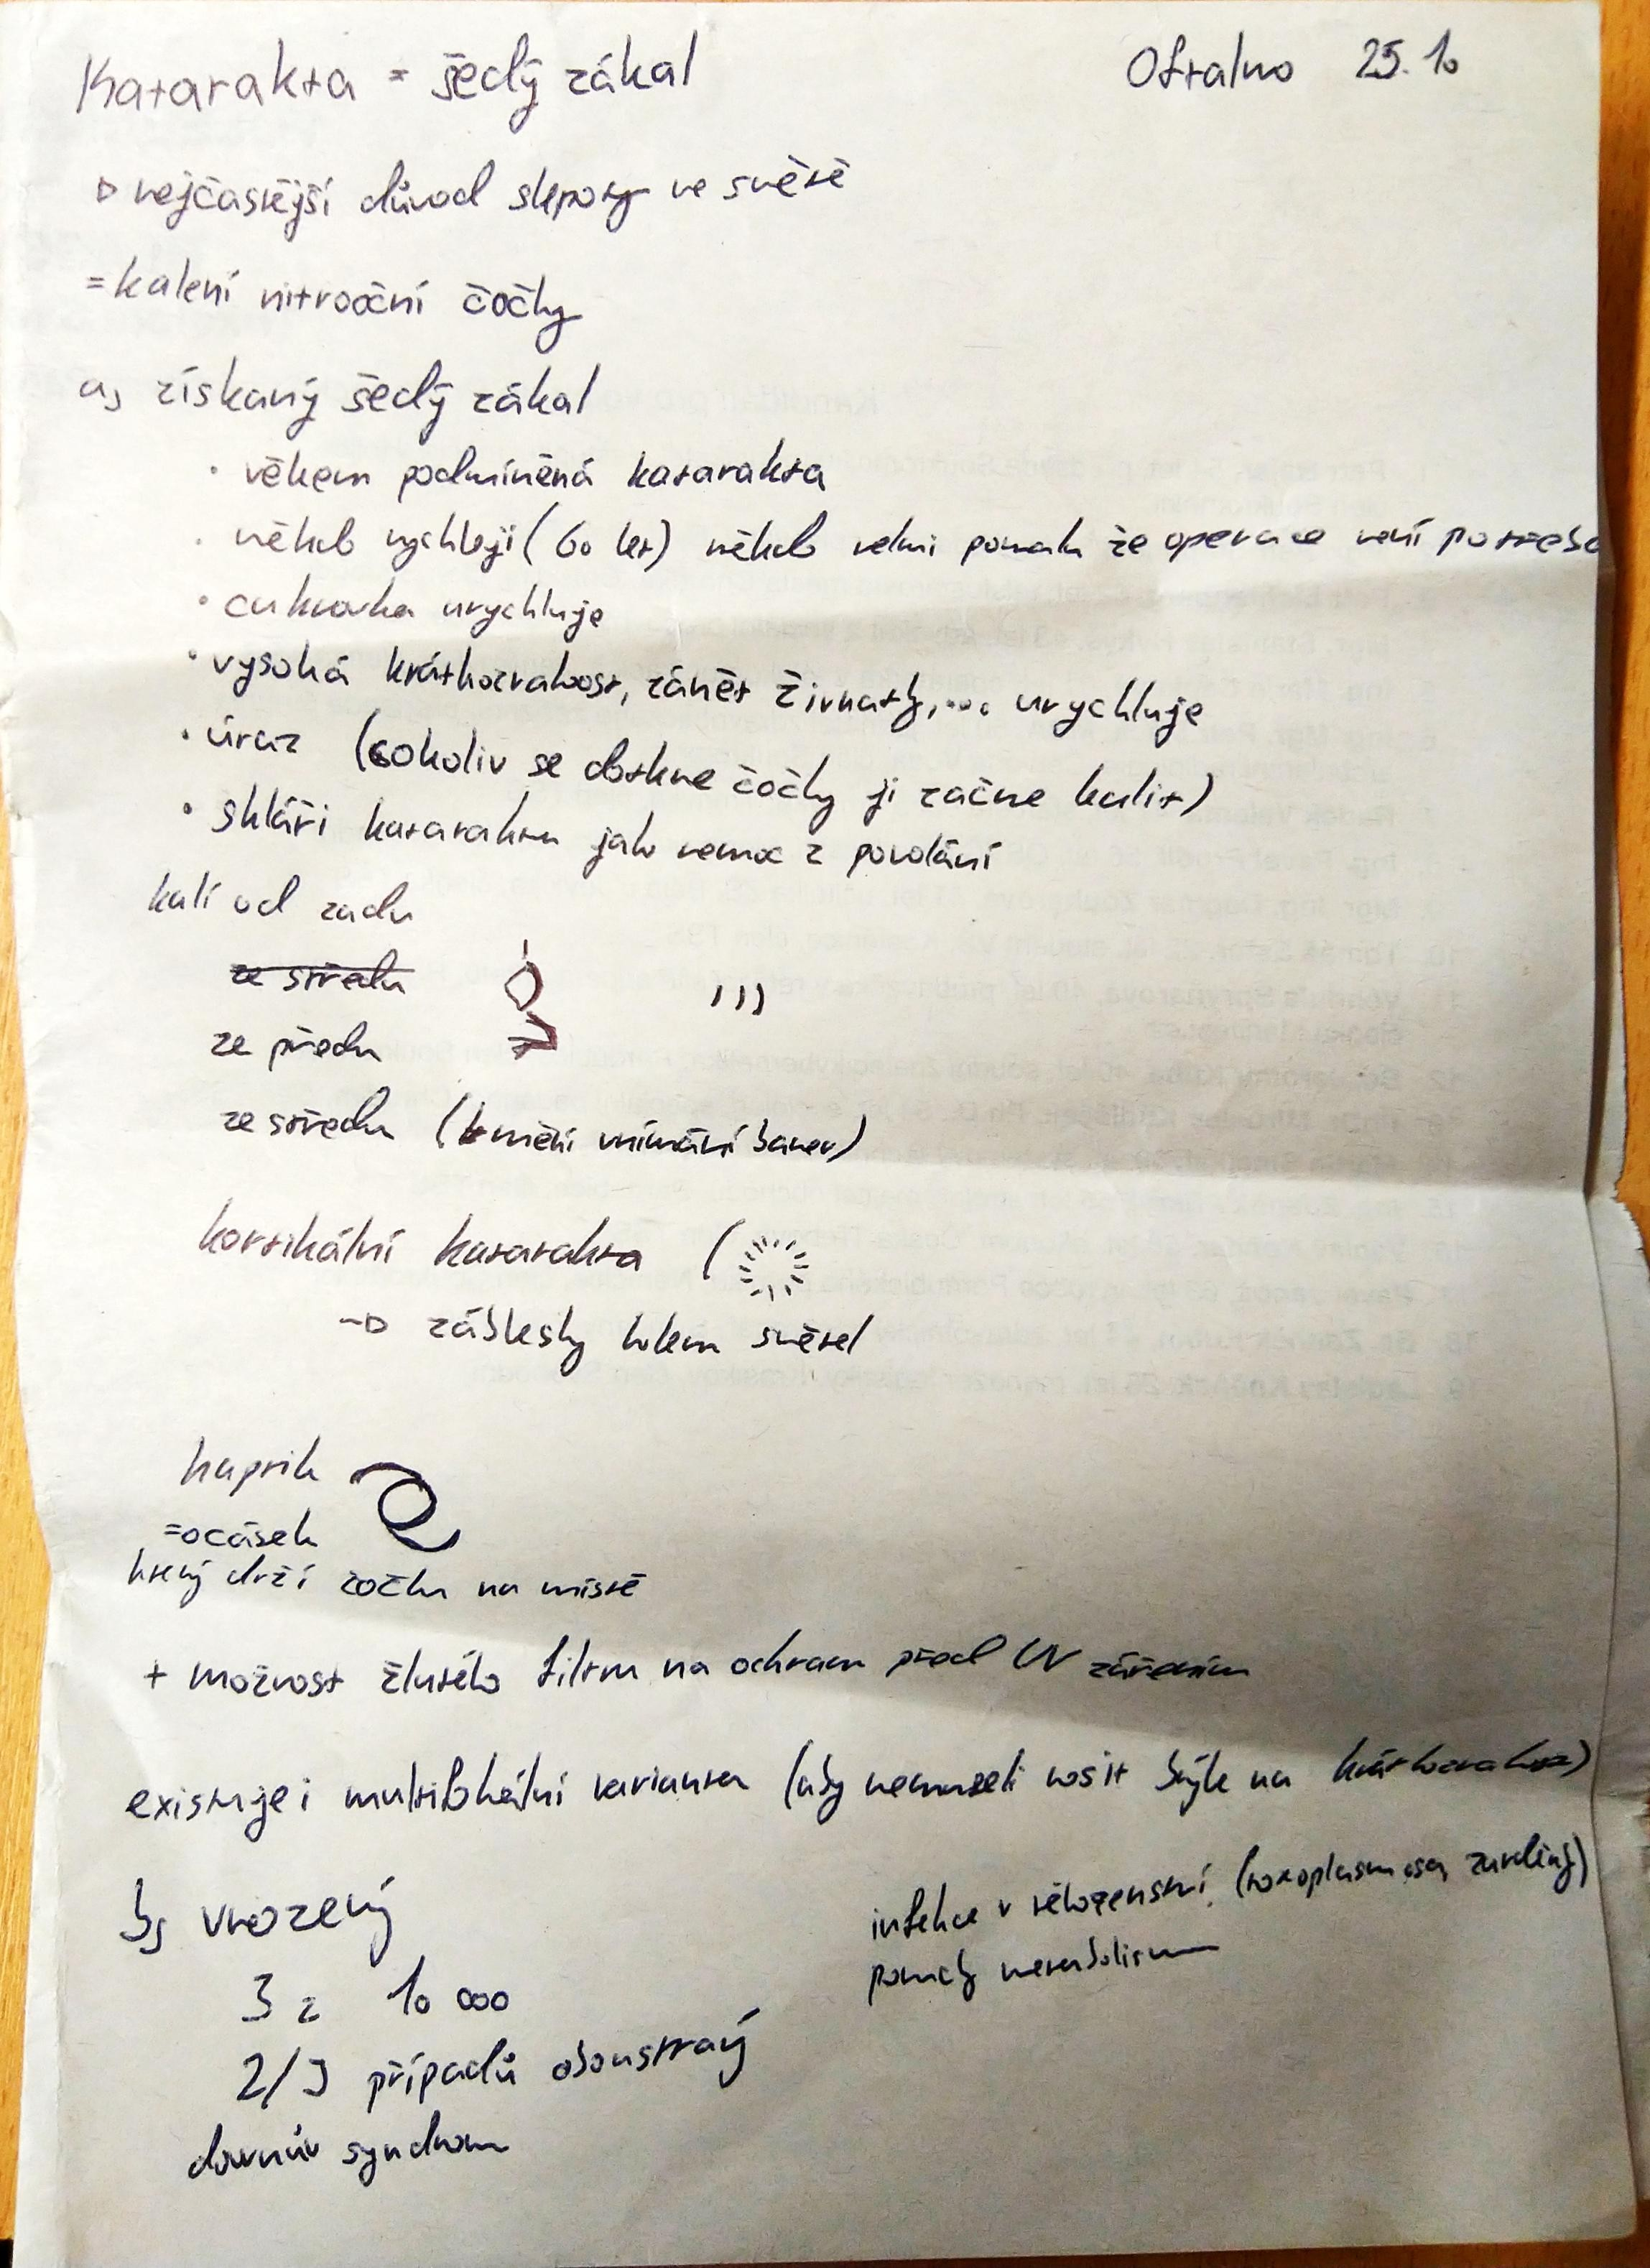 Katarakta = šedý zákal
Oftalmo 25.10
nejčastější důvod slepoty ve světě
= kalení nitrooční čočky
a, získaný šedý zákal
· věkem podmíněná katarakta
· někdo rychleji (60 let) někdo velmi pomalu že operace není potřeba
· cukrovka urychluje
· vysoká krátkozrakost, zánět živnatky,... urychluje
· úraz (cokoliv se dotkne čočky ji začne kalit)
· skláři kataraktu jako nemoc z povolání
kalí od zadu
ze středu
ze předu
ze středu (mění vnímání barev)
kortikální katarakta (
→ záblesky kolem světel
haptik
=ocásek
který drží čočku na místě
+ možnost žlutého filtru na ochranu před UV zářením
existuje i multifokální varianta (aby nemuseli nosit brýle na krátkozrakost)
b, vrozený
infekce v těhotenství (toxoplasmosa, zarděnky)
poruchy metabolismu
3 z 10 000
2/3 případů oboustraný
downův syndrom